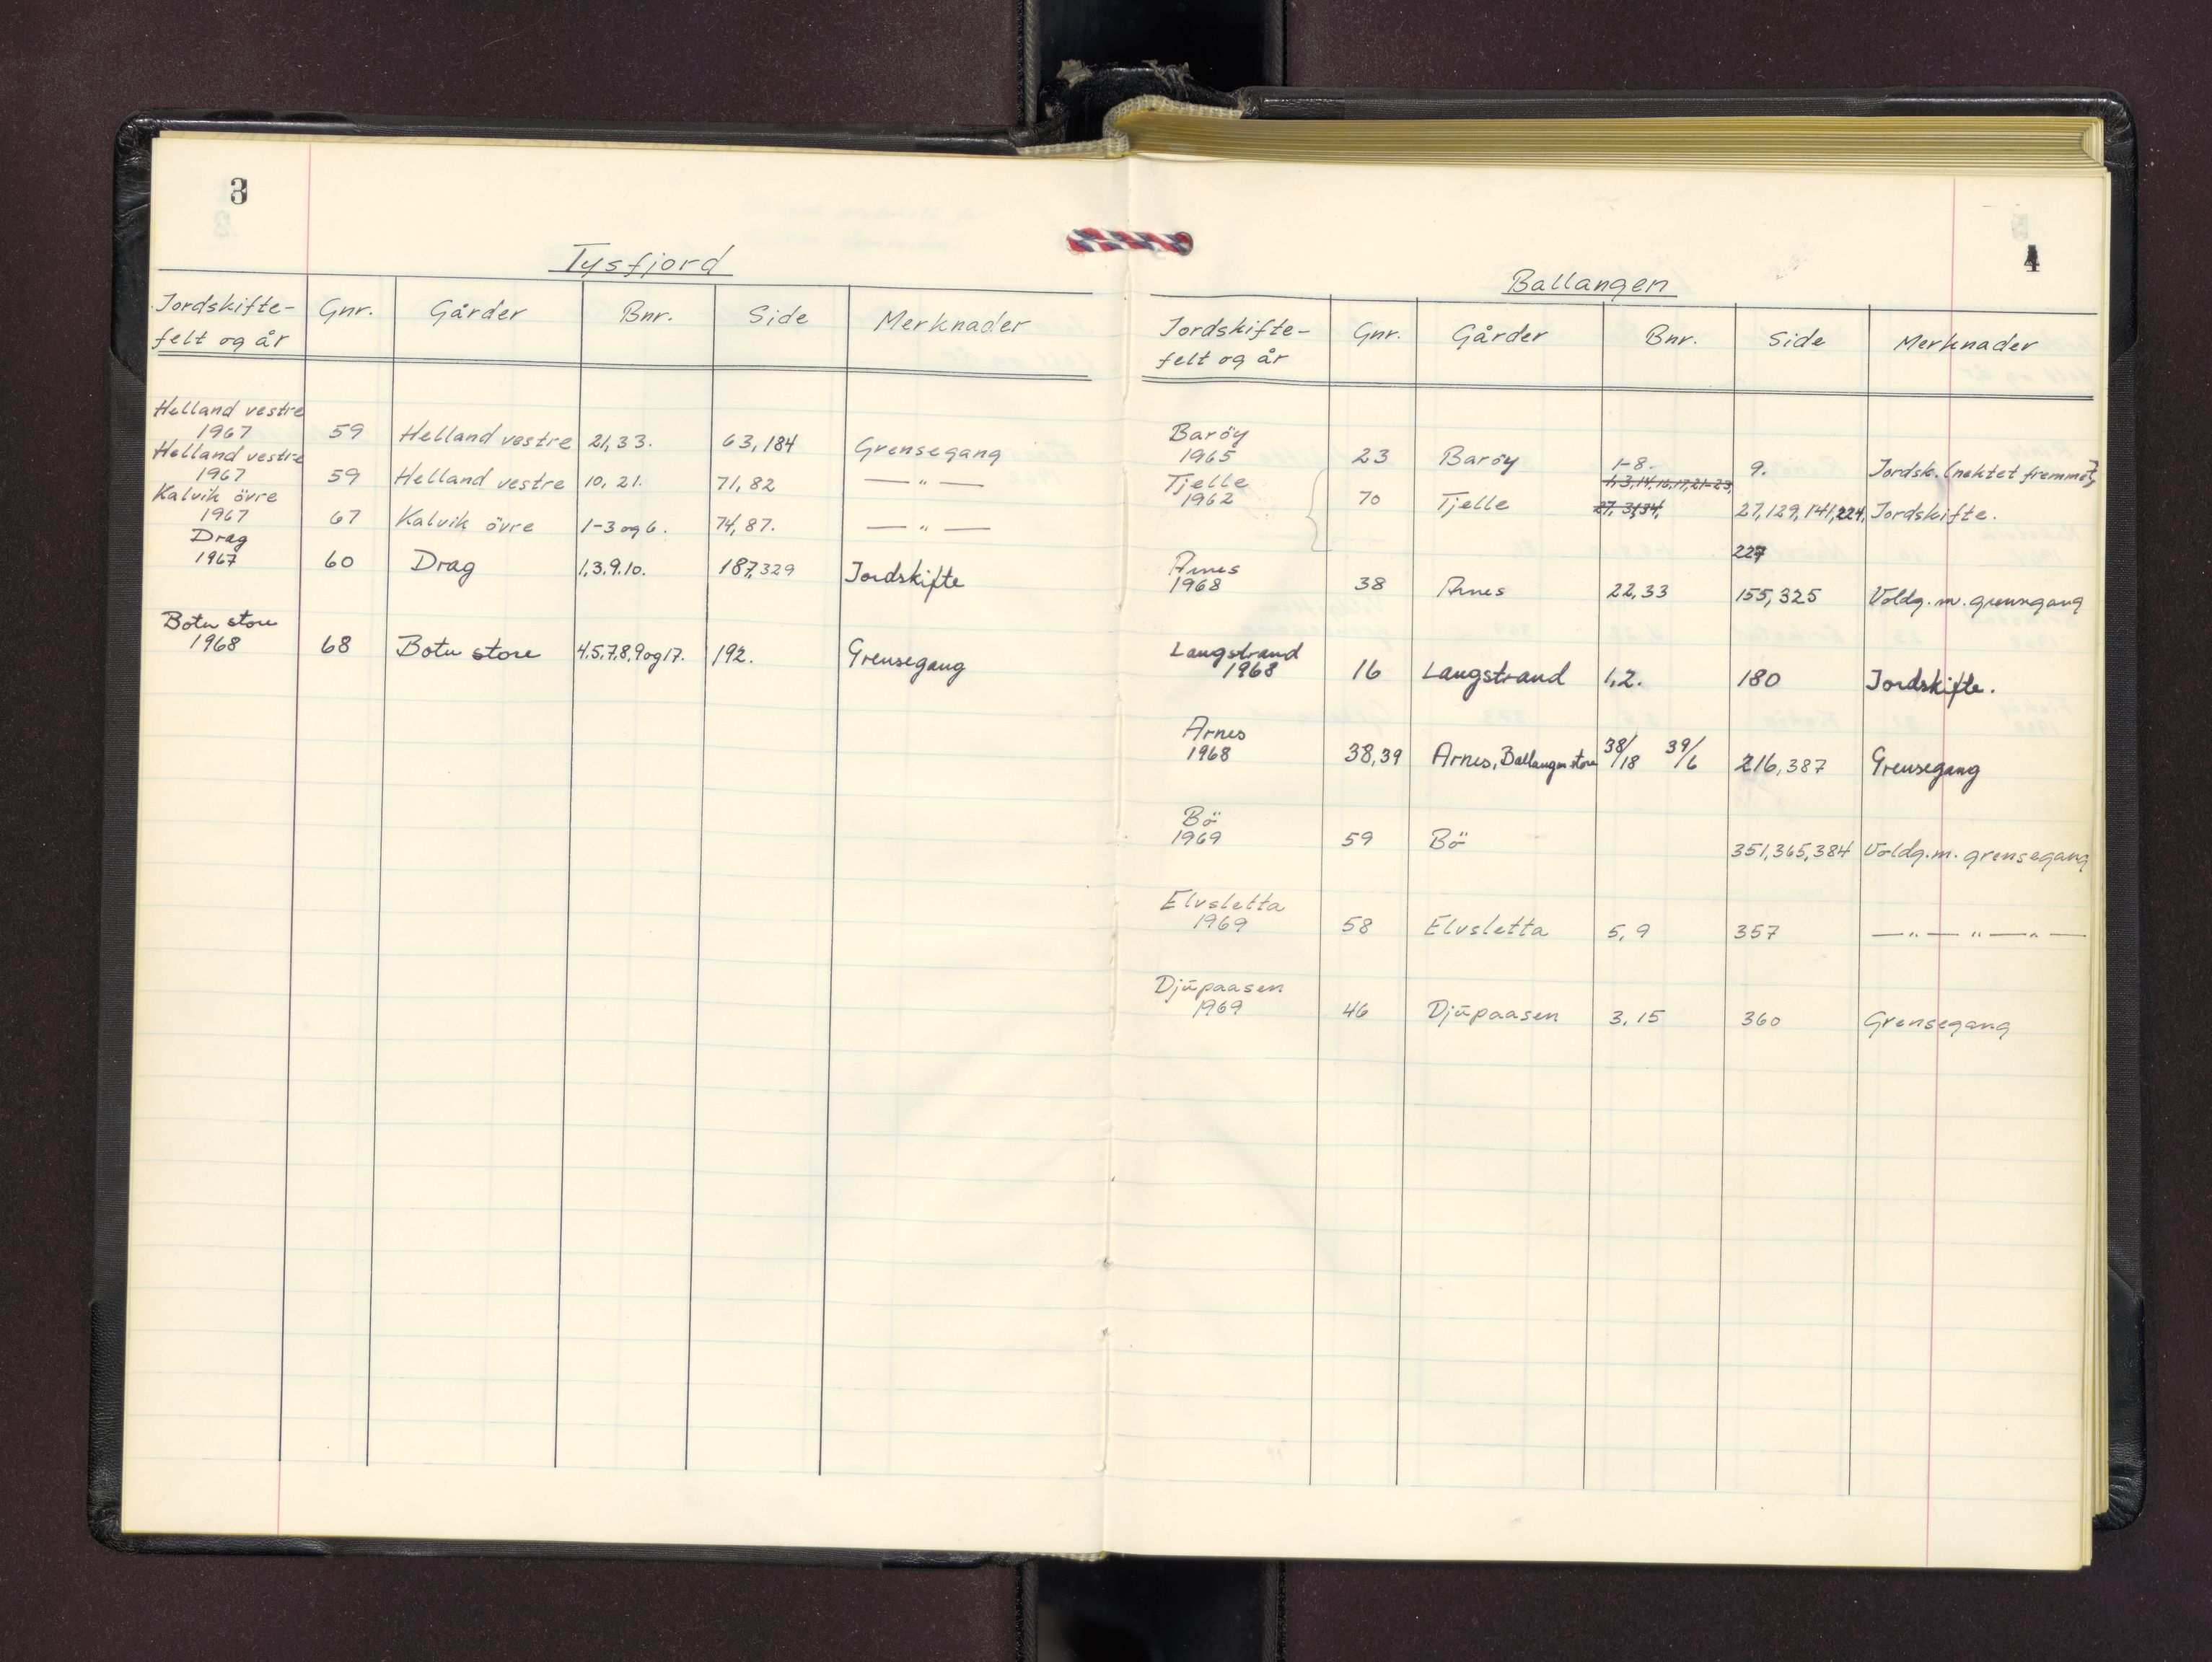 3
Tysfjord
Jordskifte- Gnr. Gårder Bnr. Side Merknader
felt og år
Helland vestre
1967 59 Helland vestre 21, 33. 63, 184 Grensegang
Helland vestre
1967 59 Helland vestre 10, 21. 71, 82 — " —
Kalvik övre
1967 67 Kalvik övre 1-3 og 6. 74, 87. — " —
Drag
1967 60 Drag 1,3.9.10. 187,329 Jordskifte
Botn store
1968 68 Botn store 4.5.7.8,9 og 17. 192. Grensegang
4
Ballangen
Jordskifte- Gnr. Gårder Bnr. Side Merknader
felt og år
Baröy
1965 23 Baröy 1-8. 9. Jordsk. (nektet fremmet)
Tjelle 1,3,14,16,17,21-23,
1962 70 Tjelle 27, 31,34, 27,129,141,224, Jordskifte.
227
Arnes
1968 38 Arnes 22,33 155,325 Voldg. m. grensegang
Langstrand
1968 16 Langstrand 1,2. 180 Jordskifte.
Arnes
1968 38,39 Arnes, Ballangen store 38/18 39/6 216,387 Grensegang
Bö
1969 59 Bö 351,365,384 Voldg.m. grensegang
Elvsletta
1969 58 Elvsletta 5, 9 357 — " — " — " —
Djupaasen
1969 46 Djupaasen 3, 15 360 Grensegang